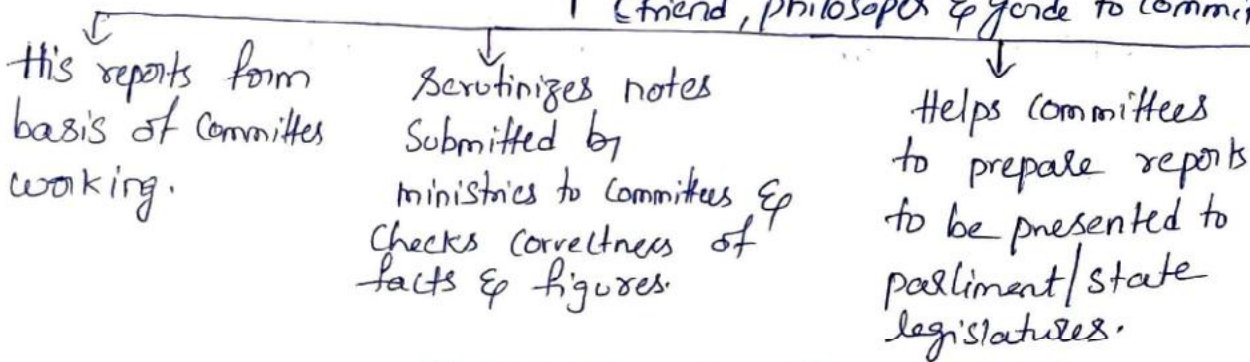 (friend, philosoper & guide to commi
His reports form
basis of Committes
working.
Scrutinizes notes
Submitted by
ministries to committees &
Checks correctness of
facts & figures.
Helps committees
to prepare reports
to be presented to
parliment/state
legislatures.